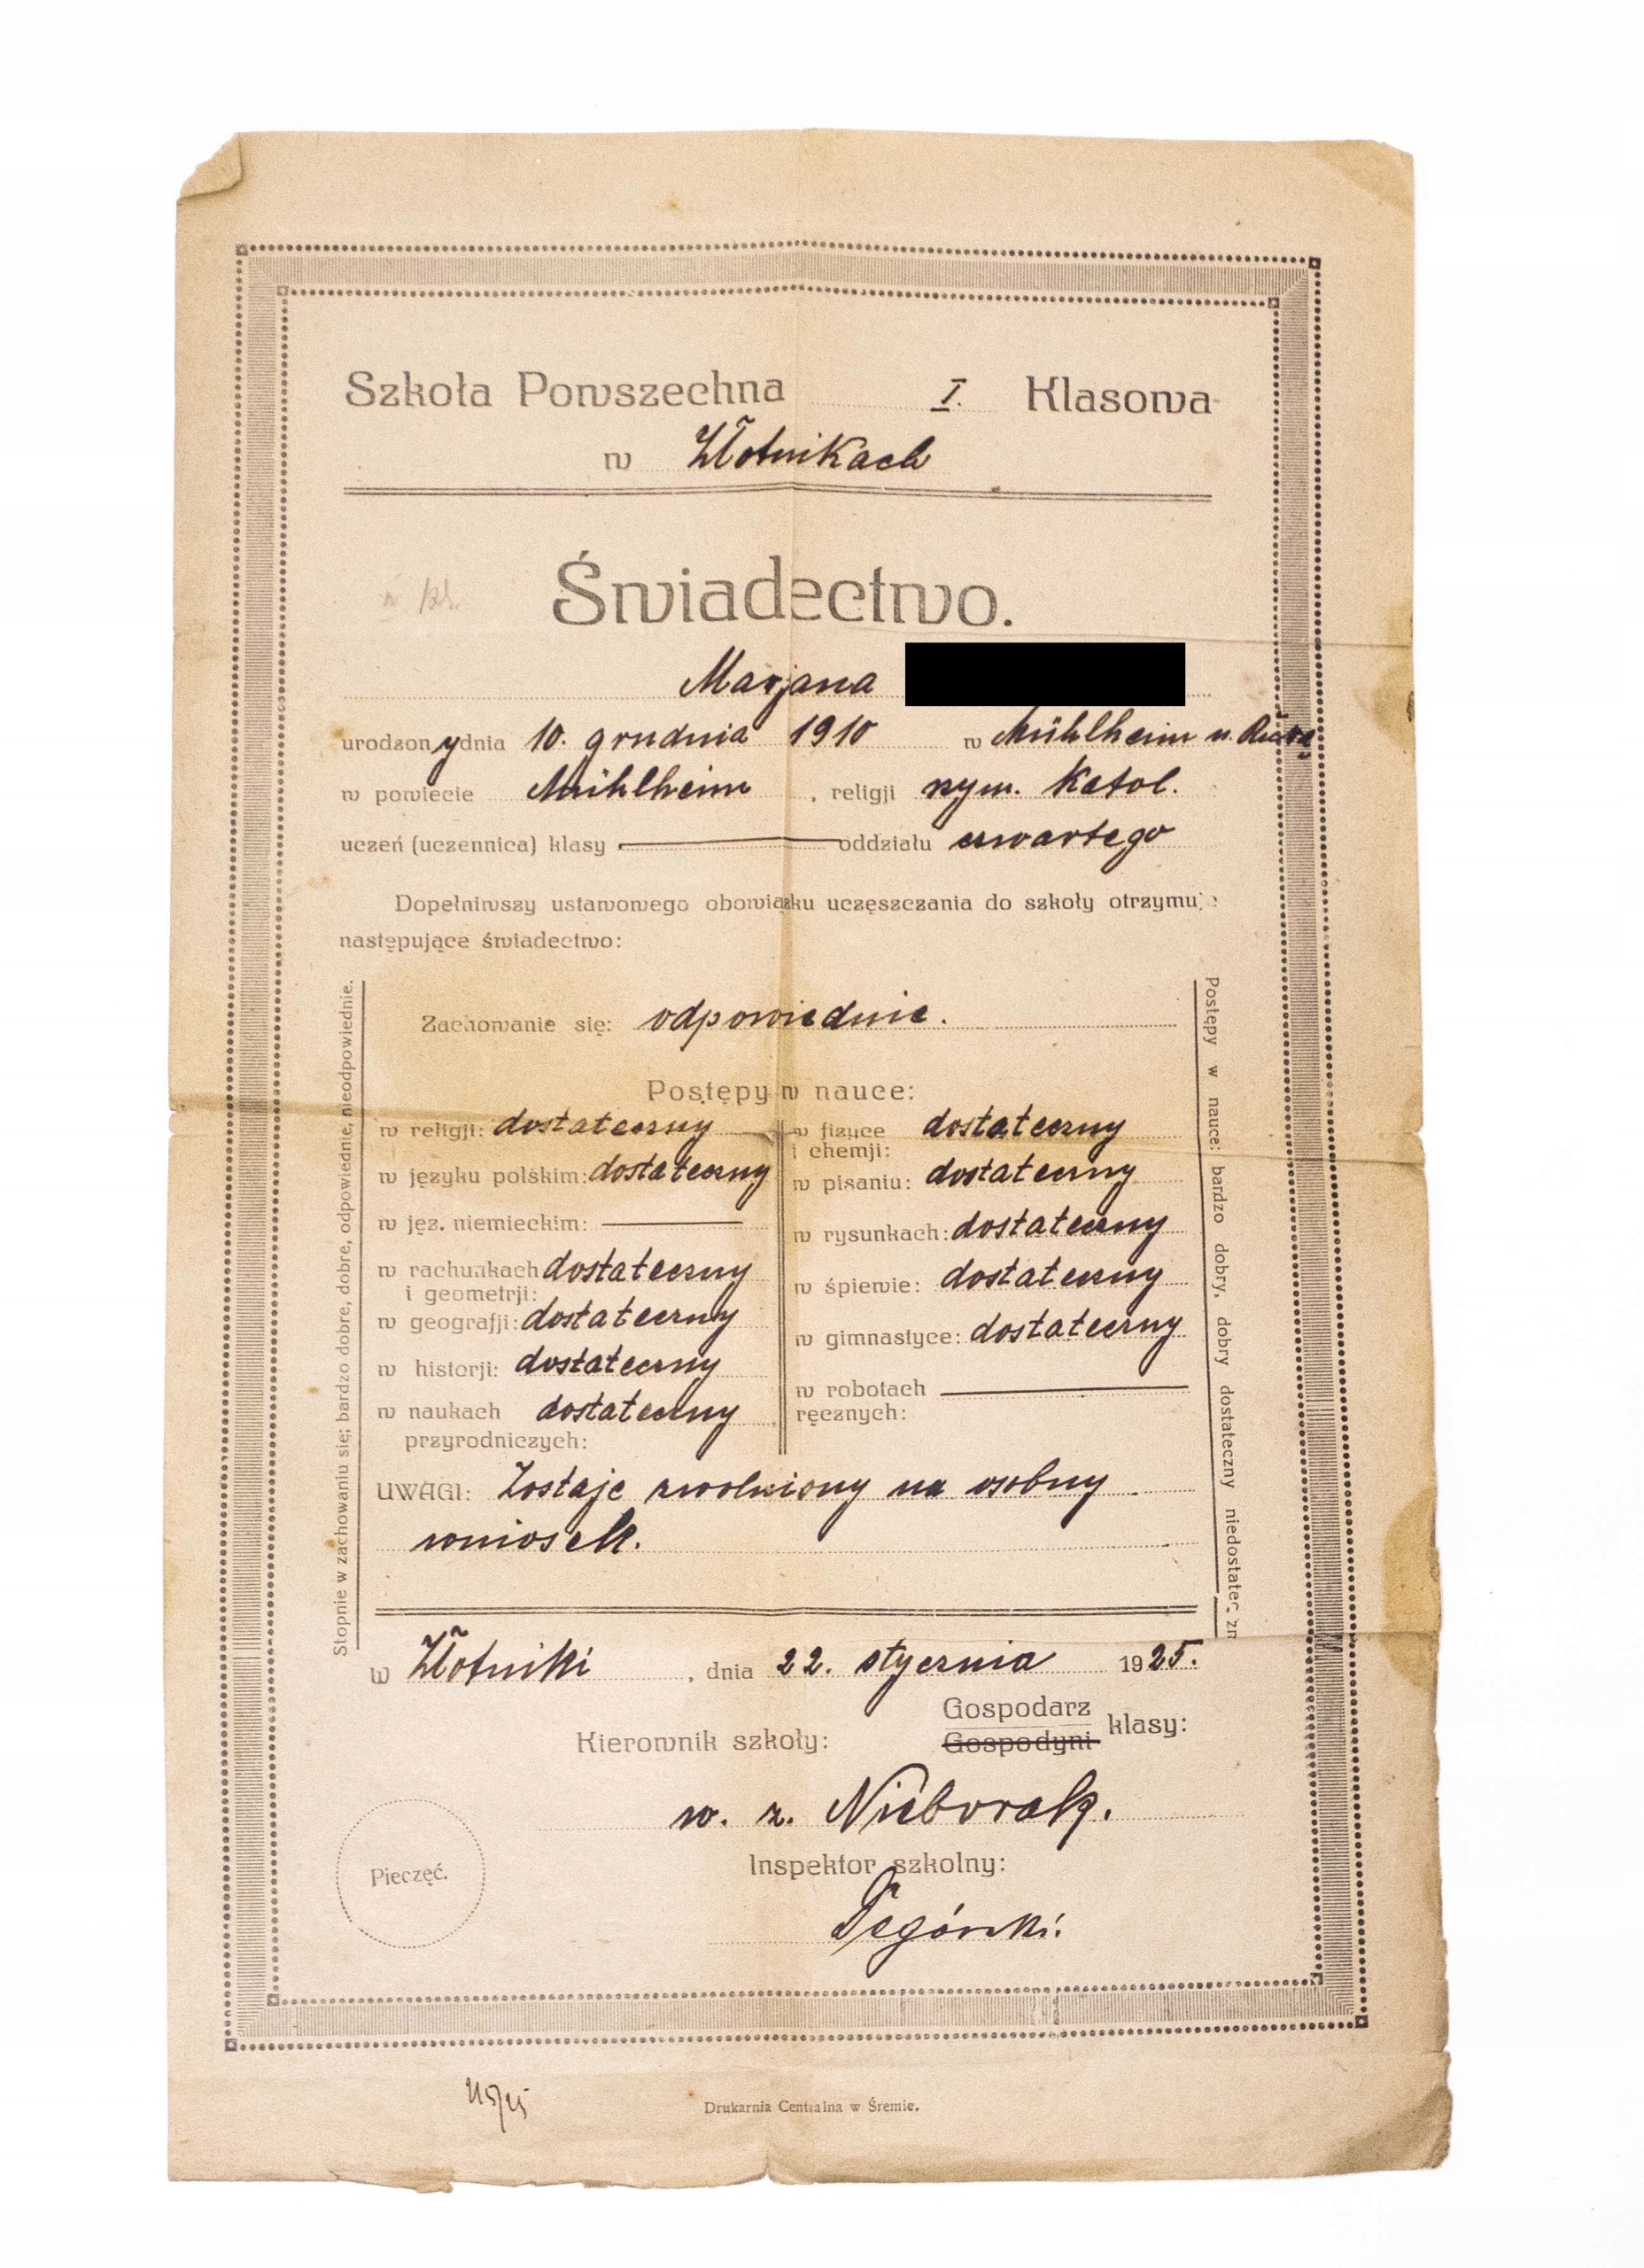 Szkoła Powszechna I. Klasowa
w Złotnikach
Świadectwo.
Marjana
urodzony dnia 10. grudnia 1910 w Mühlheim n. Ruhrą
w powiecie Mühlheim, religji rzym. katol.
uczeń (uczennica) klasy oddziału czwartego
Dopełniwszy ustawowego obowiązku uczęszczania do szkoły otrzymuje
następujące świadectwo:
Stopnie w zachowaniu się; bardzo dobre, dobre, odpowiednie, nieodpowiednie.
Zachowanie się: odpowiednie.
Postępy w nauce:
w religji: dostateczny
w języku polskim: dostateczny
w jęz. niemieckim:
w rachunkach dostateczny
i geometrji:
w geografji: dostateczny
w historji: dostateczny
w naukach dostateczny
przyrodniczych:
w fizyce dostateczny
i chemji:
w pisaniu: dostateczny
w rysunkach: dostateczny
w śpiewie: dostateczny
w gimnastyce: dostateczny
w robotach
ręcznych:
Postępy w nauce: bardzo dobry, dobry dostateczny niedostateczn
UWAGI: Zostaje zwolniony na osobny
wniosek.
w Złotniki, dnia 22. stycznia 1925.
Kierownik szkoły:
Gospodarz
Gospodyni klasy:
w. z. Nieborak.
Inspektor szkolny:
Pieczęć.
Drukarnia Centralna w Śremie.